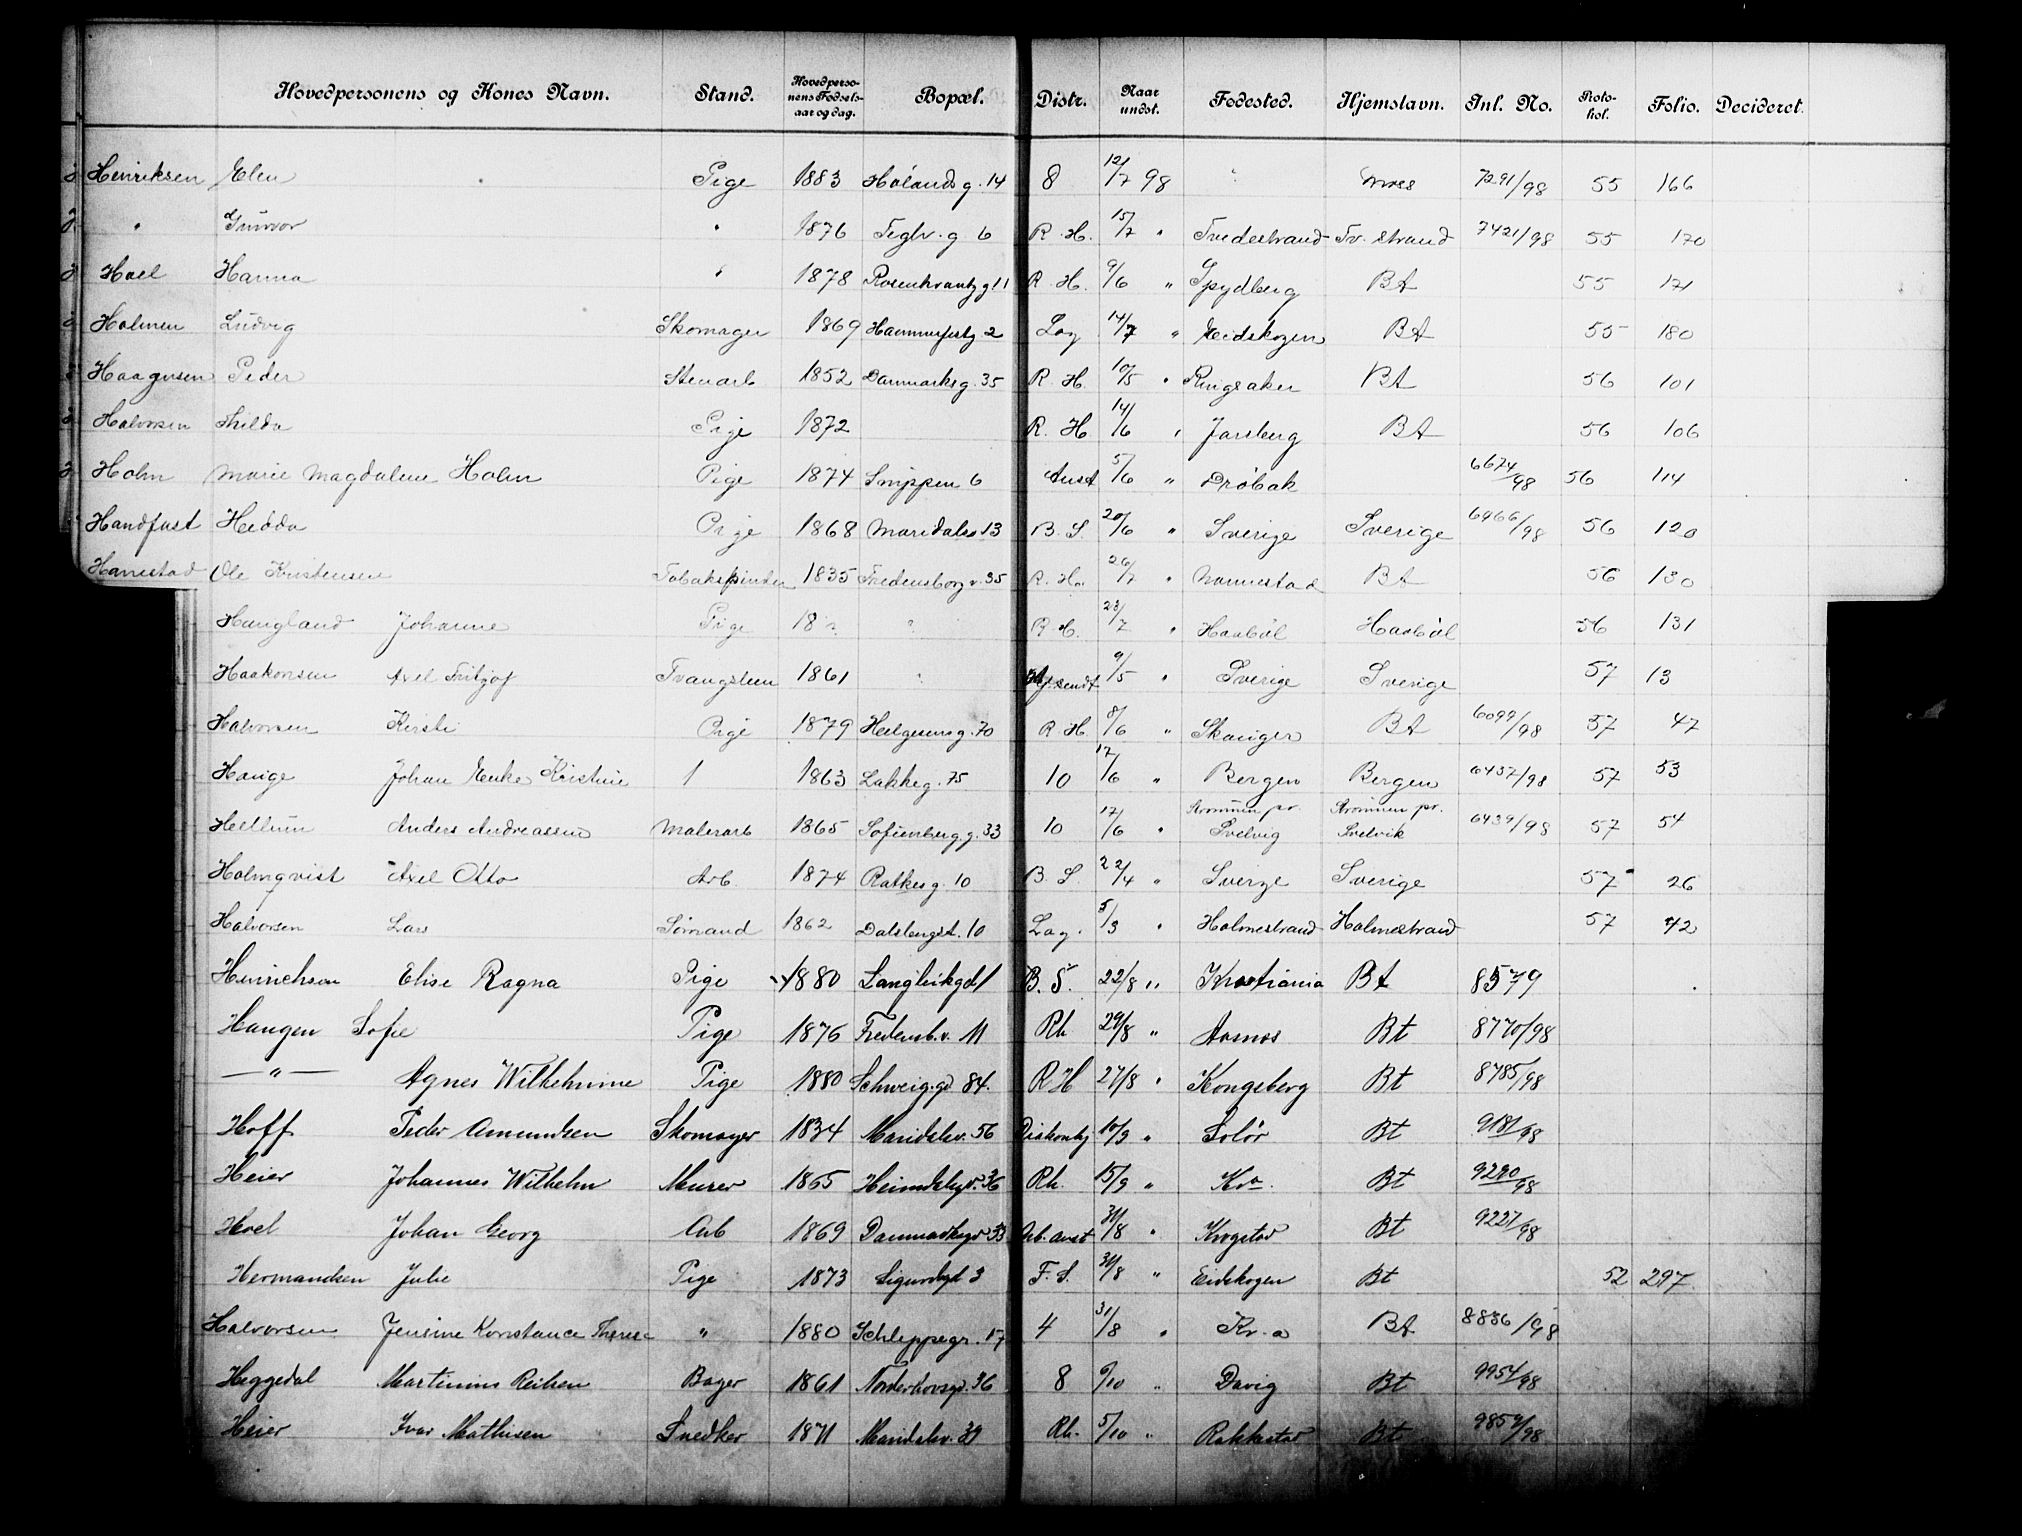 Hovedpersonens og Kones Navn. Stand. Hovedpersonens Fødselsaar og dag. Bopæl. Distr. Naar undst. Fødested. Hjemstavn. Inl. No. Protokol. Folio. Decideret.
Henriksen Elen Pige 1883 Hølandsg. 14 8 12/7 98 " 7291/98 55 166
" Gunvor " 1876 Teglv. g 6 R. H. 15/7 " Tvedestrand Tv. strand 7421/98 55 170
Hoel Hanna " 1878 Rosenkrantzg 11 R. H. 9/6 " Spydberg Bt 55 171
Holmen Ludvig Skomager 1869 Hammerfestg. 2 Log 14/7 " Eidskogen Bt 55 180
Haagensen Peder Stenarb 1852 Danmarksg. 35 R. H. 10/5 " Ringsaker Bt 56 101
Halvorsen Thilda Pige 1872 R. H 14/6 " Jarlsberg Bt 56 106
Holm Marie Magdalene Holm Pige 1874 Snippen 6 Anst 5/6 " Drøbak 6674/98 56 114
Handfast Hedda Pige 1868 Maridalsv 13 B. S. 20/6 " Sverige Sverige 6466/98 56 120
Hanestad Ole Kristensen Tobakspinder 1835 Fredensborgv. 35 R. H. 26/7 " Nannestad Bt 56 130
Haugland Johanne Pige 18 " R H. 23/7 " Haabøl Haabøl 56 131
Haakonsen Axel Fritjof Tvangsleen 1861 " Hjsendt 9/5 " Sverige Sverige 57 13
Halvorsen Kirsti Pige 1879 Helgesensg. 70 R. H. 8/6 " Skauger Bt 6099/98 57 47
Hauge Johan Enke Kristine 1 1863 Lakkeg. 75 10 17/6 " Bergen Bergen 6437/98 57 53
Hellum Anders Andreassen Malerarb 1865 Sofienbergg. 33 10 17/6 " Strømmen pr. Svelvig Strømmen pr. Svelvik 6439/98 57 54
Holmqvist Axel Otto Arb. 1874 Ratkesg. 10 B. S. 22/4 " Sverge Sverige 57 26
Halvorsen Lars Sømand 1862 Dalsbergst. 10 Log. 5/3 " Holmestrand Holmestrand 57 42
Henrichsen Elise Ragna Pige 1880 Langleikgd 1 B. S. 22/8 " Kristiania Bt 8579
Haugen Sofie Pige 1876 Fredensb.v. 11 Rh 29/8 " Aasnes Bt 8770/98
— " — Agnes Wilhelmine Pige 1880 Schweig.gd 84. R H 27/8 " Kongsberg Bt 8785/98
Hoff Peder Amundsen Skomager 1834 Maridalsv. 56 Diakonhj 10/9 " Solør Bt 9181/98
Heier Johannes Wilhelm Murer 1865 Heimdalsgd. 36 Rh. 15/9 " Kra. Bt 9220/98
Hoel Johan Georg Arb 1869 Danmarksgd 33 Arb. anst 31/8 " Krogstad Bt 9227/98
Hermandsen Julie Pige 1873 Sigurdsgd 3 F. S. 30/8 " Eidskogen Bt 52 297
Halvorsen Jensine Konstance Therese " 1880 Schleppegr. 17 4 31/8 " Kr. a Bt 8836/98
Heggedal Martinius Reihen Bager 1861 Norderhovsgd. 36 8 6/10 " Davig Bt 9954/98
Heier Ivar Mathisen Snedker 1871 Maridalsv. 39 Rh. 5/10 " Rakkestad Bt 9859/98